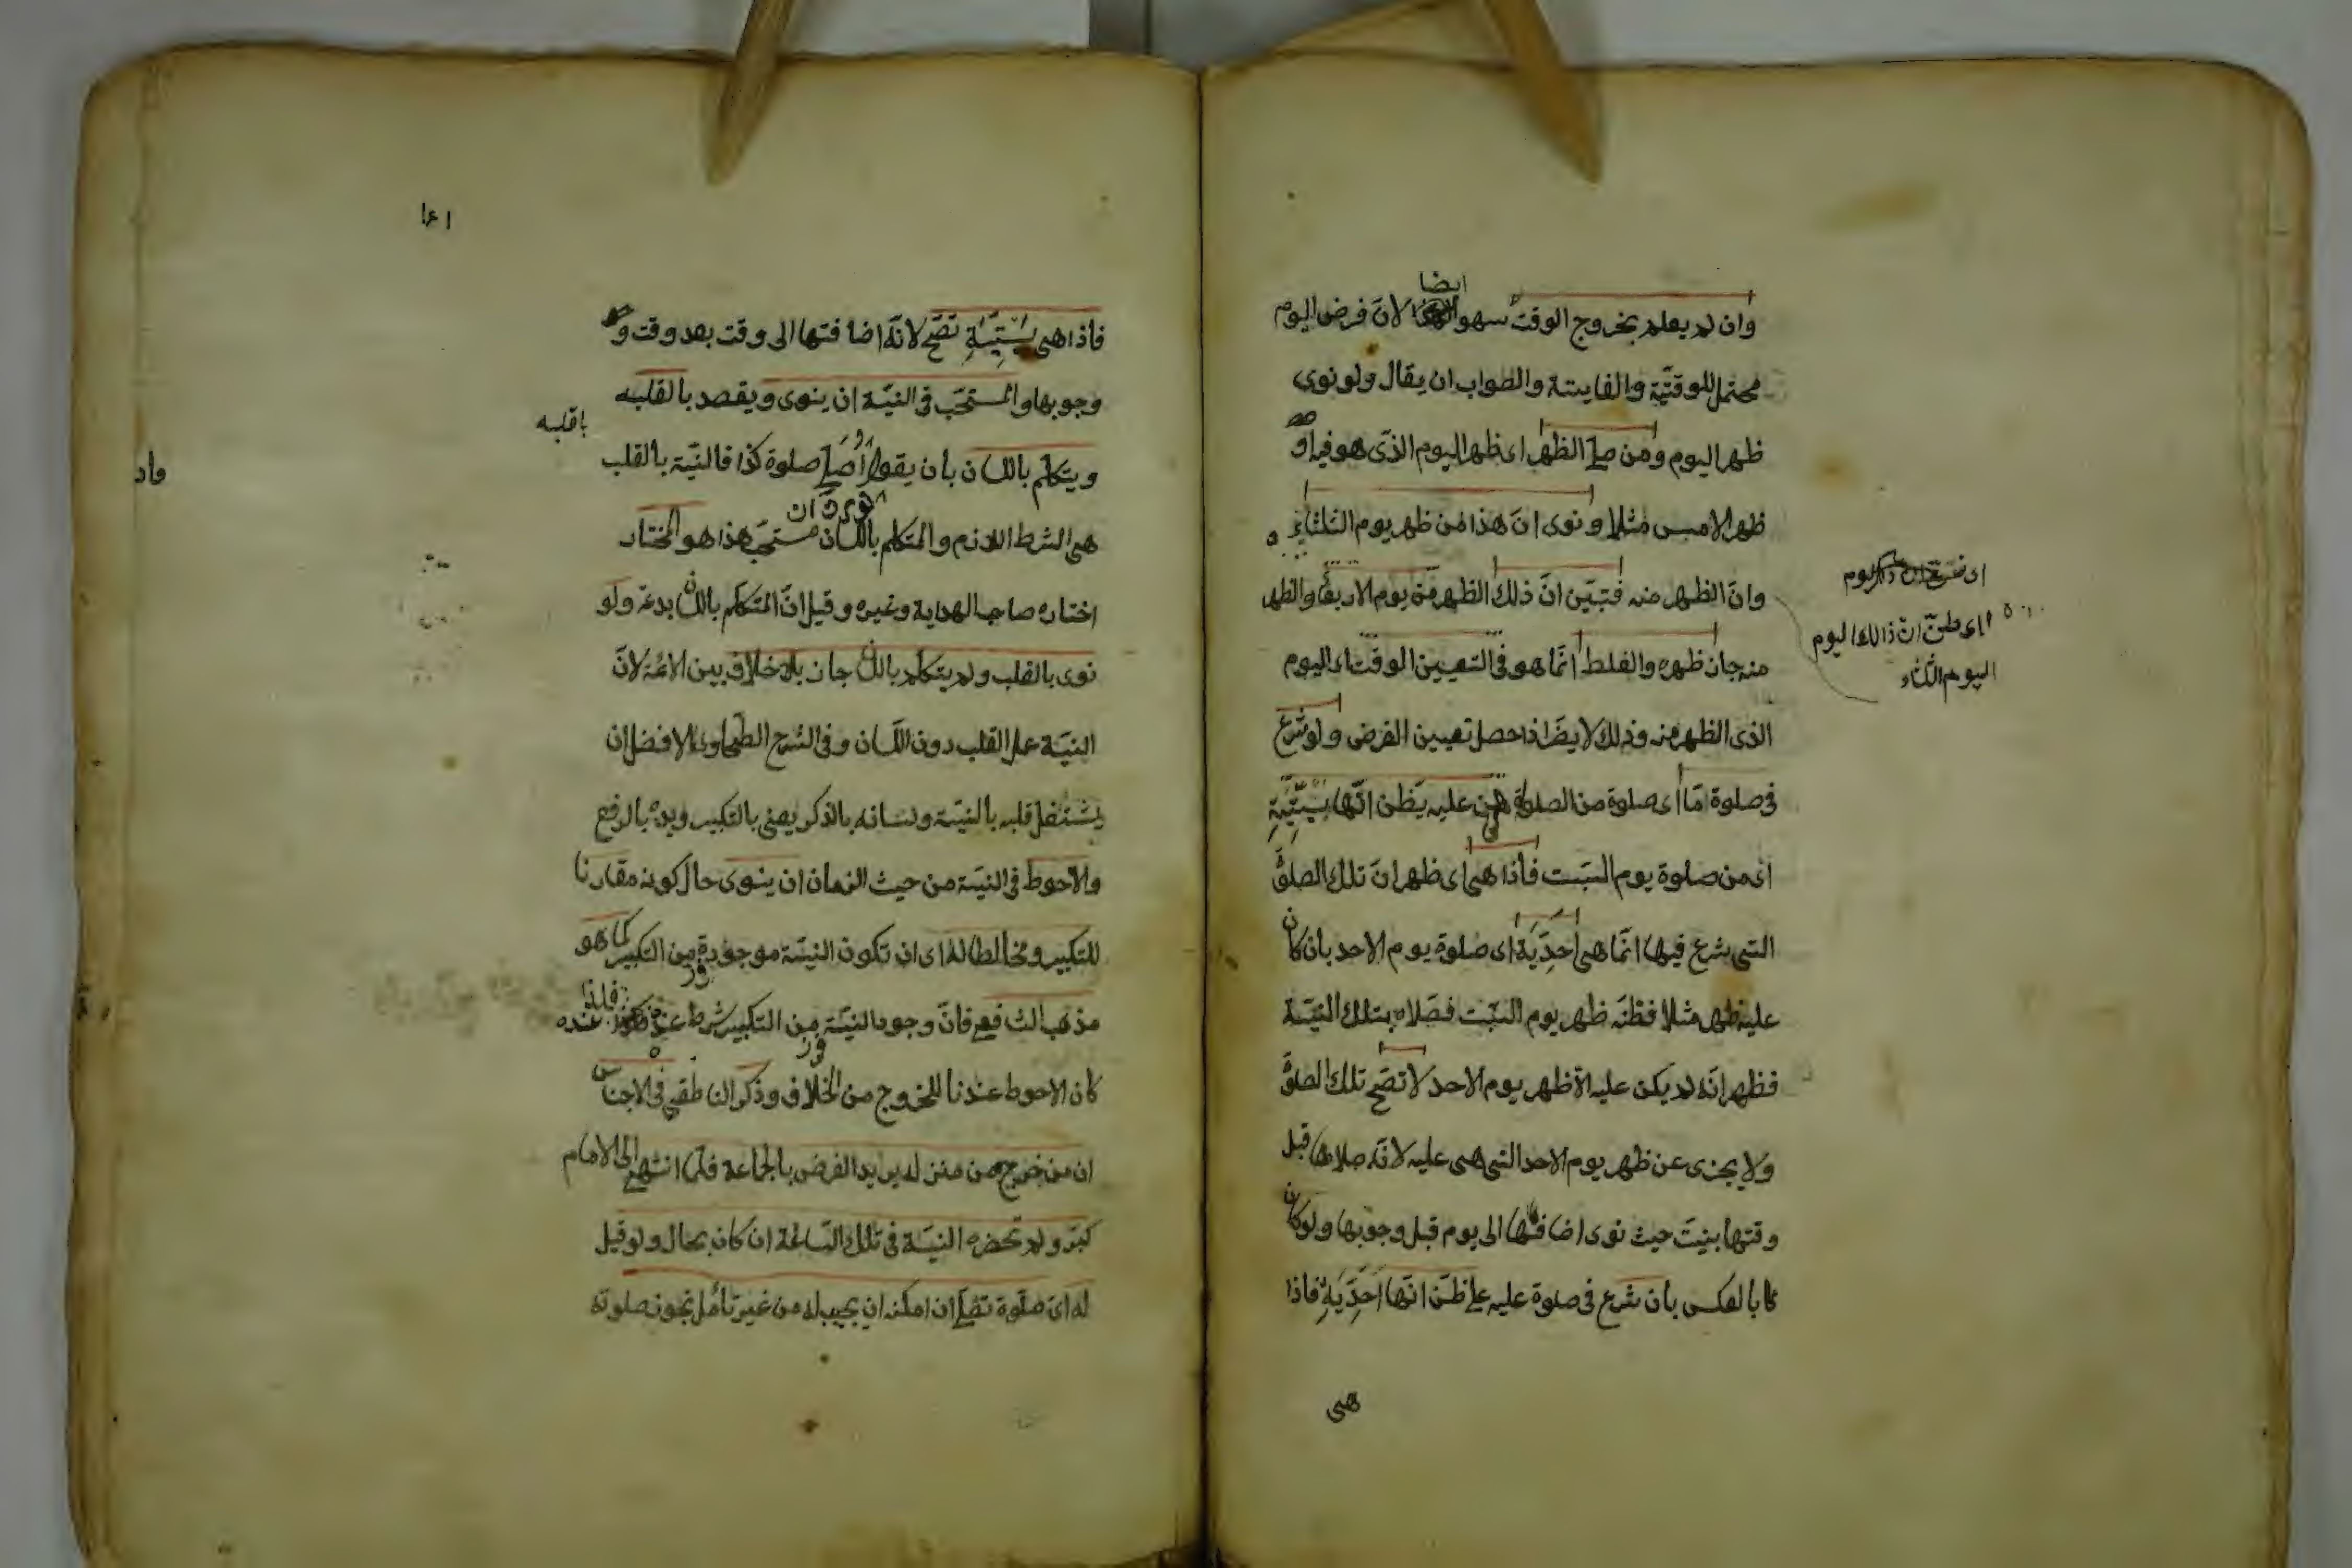 ايضا
وان لم يعلم بخروج الوقت سهوا لانّ فرض اليوم
محتمل للوقتيّة والفايتة والصواب ان يقال ولو نوى
ظهر اليوم ومن صلى الظهر اى ظهر اليوم الذى هو فيه او
ظهر الامس مثلا ونوى انّ هذا من ظهر يوم الثلثاء
وانّ الظهر منه فتبيّن انّ ذلك الظهر من يوم الاربعا والظهر
منه جاز ظهره والغلط انّما هو فى التعيين الوقت اى اليوم
الذى الظهر منه وذلك لا يضرّ اذا حصل تعيين الفرض ولو شرع
فى صلوة امّا اى صلوة من الصلوة هى عليه يظن انّها سبتيّة
اى من صلوة يوم السبت فاذا هى اى ظهر انّ تلك الصلوة
التى شرع فيها انّما هى احديّة اى صلوة يوم الاحد بان كان
عليه ظهر مثلا فظنّه ظهر يوم السبت فصلاه بتلك النيّة
فظهر انّه لم يكن عليه الا ظهر يوم الاحد لا تصحّ تلك الصلوة
ولا يجزى عن ظهر يوم الاحد التى هى عليه لانّه صلاها قبل
وقتها بنيّت حيث نوى اضافتها الى يوم قبل وجوبها ولو كان
كا بالعكس بان شرع فى صلوة عليه على ظنّ انّها احديّة فاذا
هى
يوم
اى ظنّ انّ ذالك اليوم
اليوم الثلثاء
١٤١
فاذا هى سبتيّة تصحّ لانّه اضافتها الى وقت بعد وقت و
وجوبها والمستحبّ فى النيّة ان ينوى ويقصد بالقلبه
باقلبه
ويتكلم باللسان بان يقول اصلى صلوة كذا فالنيّة بالقلب
هى الشرط اللازم والمتكلم باللسان مستحبّ هذا هو المختار
اختاره صاحب الهداية وغيره وقيل انّ المتكلم باللسان بدعة ولو
نوى بالقلب ولم يتكلم باللسان جاز بلا خلاف بين الائمة لانّ
النيّة عمل القلب دون اللّسان وفى الشرح الطحاوى الافضل ان
يشتغل قلبه بالنيّة ولسانه بالذكر يعنى بالتكبير ويده بالرفع
والاحوط فى النيّة من حيث الزمان ان ينوى حال كونه مقارنا
للتكبير ومخالطا له اى ان تكون النيّة موجودة من التكبير كما هو
مذهب الشافعى فانّ وجود النيّة من التكبير شرط عنده فلذا عنده
كان الاحوط عندنا للخروج من الخلاف وذكر الناطقى فى الاجناس
ان من خرج من منزله يريد الفرض بالجماعة فلمّا انتهى الى الامام
كبّر ولم تحضره النيّة فى تلك السّاعة ان كان بحال ولو قيل
له اىّ صلوة تصلى ان امكنه ان يجيب له من غير تأمّل تجوز صلوته
واد